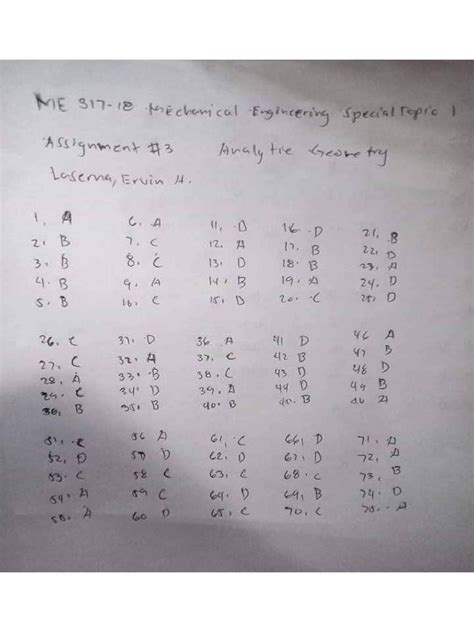 ME 317-18 Mechanical Engineering Special Topic 1
Assignment #3 Analytic Geometry
Laserna, Ervin H.
1. A 6. A 11. D 16. D 21. B
2. B 7. C 12. A 17. B 22. D
3. B 8. C 13. D 18. B 23. A
4. B 9. A 14. B 19. A 24. D
5. B 10. C 15. D 20. C 25. D
26. C 31. D 36. A 41 D 46 A
27. C 32. A 37. C 42 B 47 B
28. A 33. B 38. C 43 D 48 D
29. C 34. D 39. A 44 D 49 B
30. B 35. B 40. B 45. B 50 A
51. C 56 A 61. C 66. D 71. A
52. D 57 D 62. D 67. D 72. A
53. C 58 C 63. C 68. C 73. B
54. A 59 C 64. D 69. B 74. D
55. A 60 D 65. C 70. C 75. A